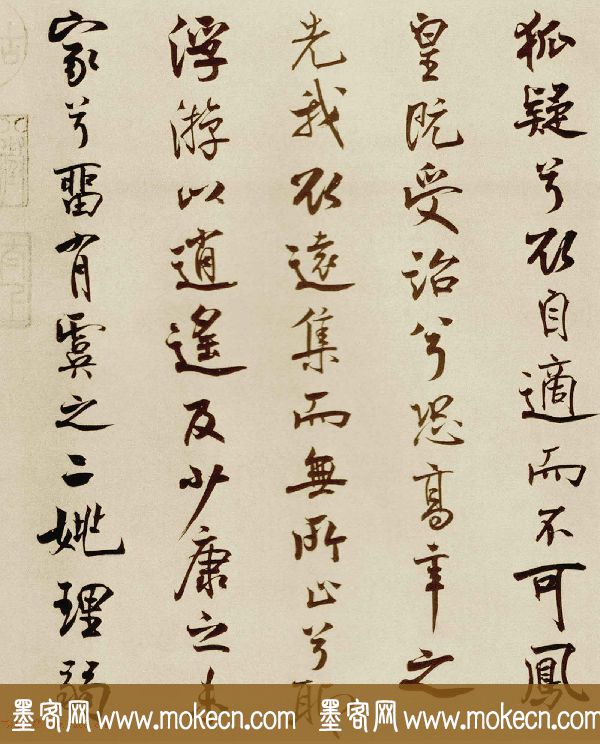 狐疑兮欲自適而不可鳳
皇既受詒兮恐高辛之
先我欲遠集而無所止兮聊
浮游以逍遙及少康之未
家兮留有虞之二姚理弱
墨客网 www.mokecn.com 墨客网 www.mokecn.com